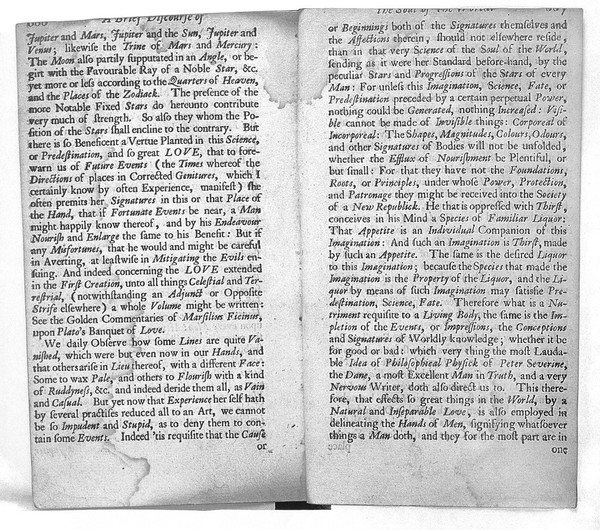 A Brief Discourse of
Jupiter and Mars, Jupiter and the Sun, Jupiter and
Venus; likewise the Trine of Mars and Mercury:
The Moon also partly supputated in an Angle, or be-
girt with the Favourable Ray of a Noble Star, &c.
yet more or less according to the Quarters of Heaven,
and the Places of the Zodiack. The presence of the
more Notable Fixed Stars do hereunto contribute
very much of strength. So also they whom the Po-
sition of the Stars shall encline to the contrary. But
there is so Beneficent a Vertue Planted in this Science,
or Predestination, and so great LOVE, that to fore-
warn us of Future Events (the Times whereof the
Directions of places in Corrected Genitures, which I
certainly know by often Experience, manifest) she
often premits her Signatures in this or that Place of
the Hand, that if Fortunate Events be near, a Man
might happily know thereof, and by his Endeavour
Nourish and Enlarge the same to his Benefit: But if
any Misfortunes, that he would and might be careful
in Averting, at leastwise in Mitigating the Evils en-
suing. And indeed concerning the LOVE extended
in the First Creation, unto all things Celestial and Ter-
restrial, (notwithstanding an Adjunct or Opposite
Strife elsewhere) a whole Volume might be written:
See the Golden Commentaries of Marsilius Ficinus,
upon Plato's Banquet of Love.
We daily Observe how some Lines are quite Va-
nished, which were but even now in our Hands, and
that others arise in Lieu thereof, with a different Face:
Some to wax Pale, and others to Flourish with a kind
of Ruddyness, &c. and indeed deride them all, as Vain
and Casual. But yet now that Experience her self hath
by several practises reduced all to an Art, we cannot
be so Impudent and Stupid, as to deny them to con-
tain some Events. Indeed 'tis requisite that the Cause
or
The Soul of the World
or Beginning both of the Signatures themselves and
the Affections therein, should not elsewhere reside,
than in that very Science of the Soul of the World,
sending as it were her Standard before-hand, by the
peculiar Stars and Progressions of the Stars of every
Man: For unless this Imagination, Science, Fate, or
Predestination preceded by a certain perpetual Power,
nothing could be Generated, nothing Increased: Visi-
ble cannot be made of Invisible things: Corporeal of
Incorporeal: The Shapes, Magnitudes, Colours, Odours,
and other Signatures of Bodies will not be unfolded,
whether the Efflux of Nourishment be Plentiful, or
but small: For that they have not the Foundations,
Roots, or Principles, under whose Power, Protection,
and Patronage they might be received into the Society
of a New Republick. He that is oppressed with Thirst,
conceives in his Mind a Species of Familiar Liquor:
That Appetite is an Individual Companion of this
Imagination: And such an Imagination is Thirst, made
by such an Appetite. The same is the desired Liquor
to this Imagination; because the Species that made the
Imagination is the Property of the Liquor, and the Li-
quor by means of such Imagination may satisfie Pre-
destination, Science, Fate. Therefore what is a Nu-
triment requisite to a Living Body, the same is the Im-
pletion of the Events, or Impressions, the Conceptions
and Signatures of Worldly knowledge; whether it be
for good or bad: which very thing the most Lauda-
ble Idea of Philosophical Physick of Peter Severine,
the Dane, a most Excellent Man in Truth, and a very
Nervous Writer, doth also direct us to. This there-
fore, that effects so great things in the World, by a
Natural and Inseparable Love, is also employed in
delineating the Hands of Men, signifying whatsoever
things a Man doth, and they for the most part are in
one